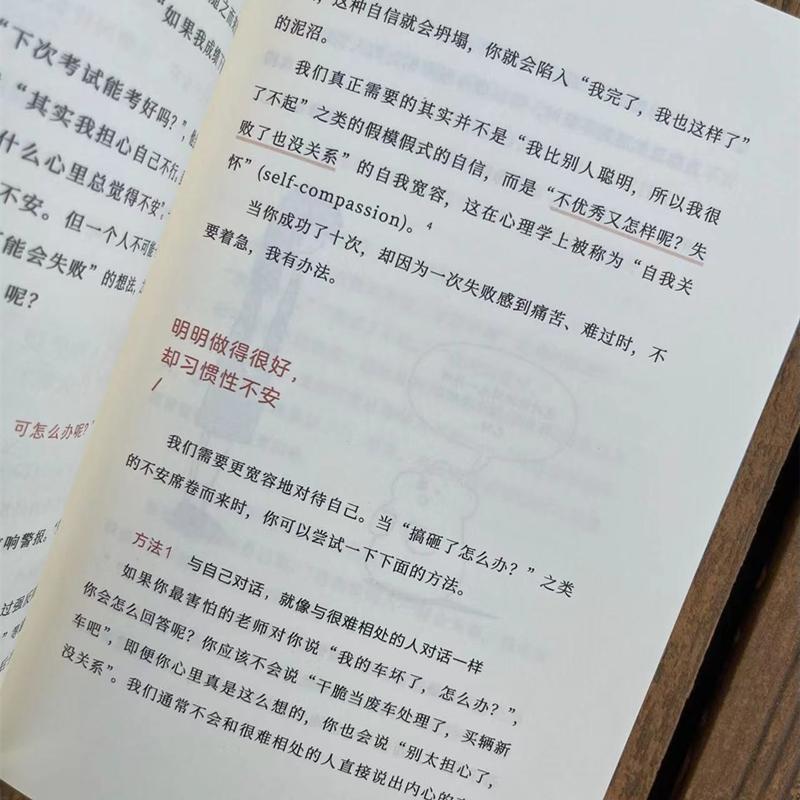 “如果我成绩
“下次考试能考好吗？”
“其实我担心自己不行，
什么心里总觉得不安”，
不安。但一个人不可能
能会失败”的想法，
呢？
可怎么办呢？”
响警报。
，这种自信就会坍塌，你就会陷入“我完了，我也这样了”
的泥沼。
我们真正需要的其实并不是“我比别人聪明，所以我很
了不起”之类的假模假式的自信，而是“不优秀又怎样呢？失
败了也没关系”的自我宽容，这在心理学上被称为“自我关
怀”(self-compassion)。4
当你成功了十次，却因为一次失败感到痛苦、难过时，不
要着急，我有办法。
明明做得很好，
却习惯性不安
/
我们需要更宽容地对待自己。当“搞砸了怎么办？”之类
的不安席卷而来时，你可以尝试一下下面的方法。
方法1 与自己对话，就像与很难相处的人对话一样
如果你最害怕的老师对你说“我的车坏了，怎么办？”，
你会怎么回答呢？你应该不会说“干脆当废车处理了，买辆新
车吧”，即便你心里真是这么想的，你也会说“别太担心了，
没关系”。我们通常不会和很难相处的人直接说出内心的